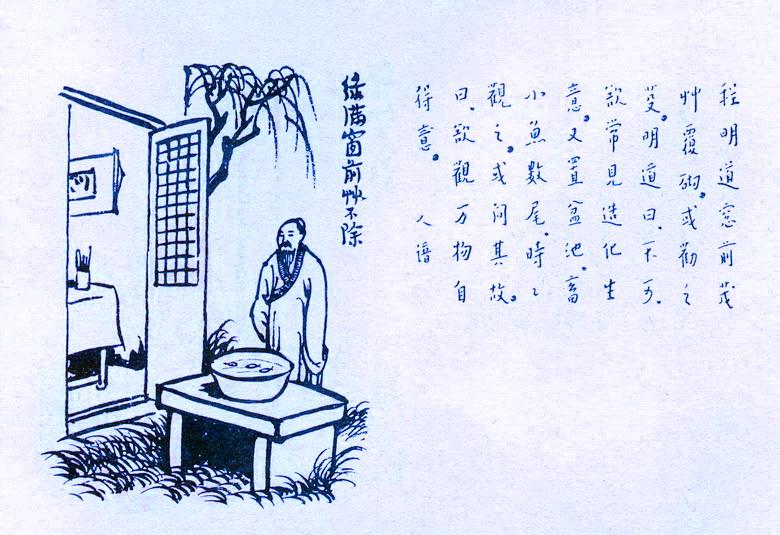 程明道窓前茂
艸覆砌。或勸之
芟。明道曰。不可。
欲常見造化生
意。又置盆池。畜
小魚數尾。時〻
觀之。或问其故。
曰。欲觀万物自
得意。 人谱
綠滿窗前艸不除